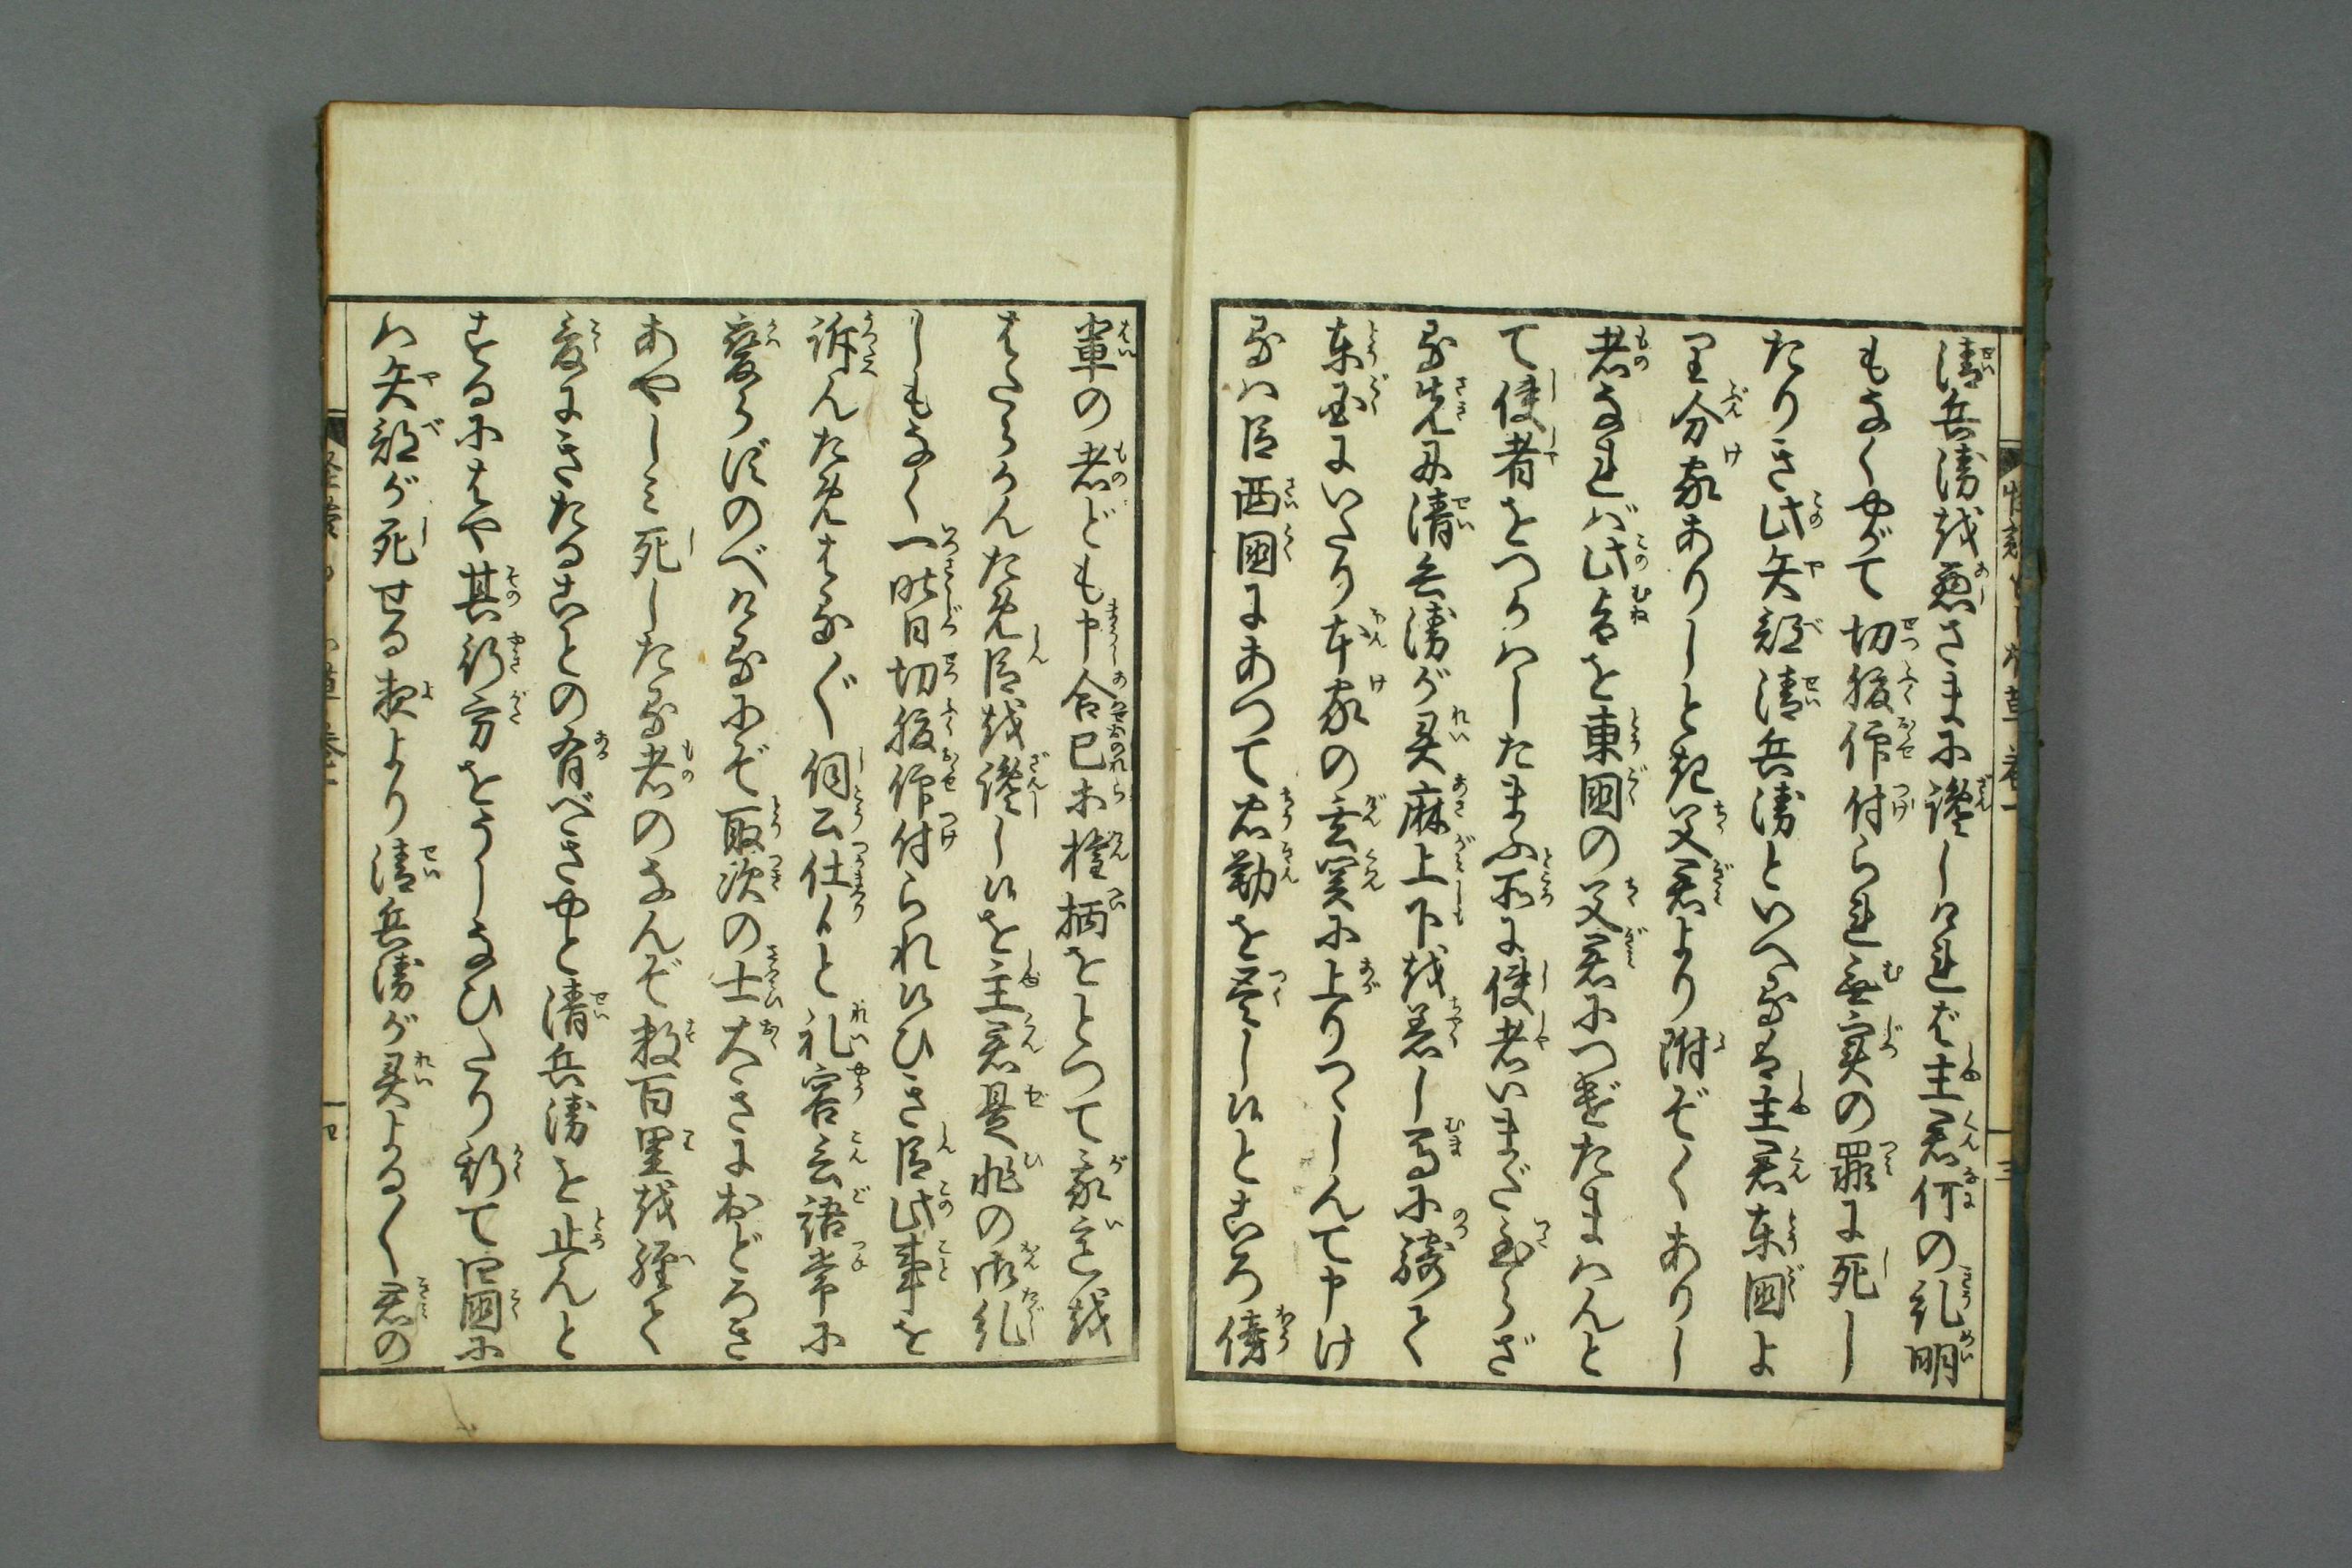 清兵衛越悪さまに讒しければ主君何の糺明
もなくやがて切腹仰付られ無実の罪に死し
たりき此矢部清兵衛といへるは主君東國よ
り分家ありしとき父君より附ぞくありし
者なれば此旨を東國の父君につげたまはんと
て使者をつかはしたまふ所に使者いまだ至らざ
る先に清兵衛が灵麻上下越着し馬に騎て
東国にいたり本家の玄関に上りつゝしんで申け
るは臣西國にあつて忠勤を尽し候ところ傍
輩の者ども申合己ホ権柄をとつて家を越
はからんため臣越讒し候を主君是非の御糺
しもなく一昨日切腹仰付られ候ひき臣此事を
訴んためはる〴〵伺公仕ると礼容言語常に
変らずのべけるにぞ取次の士大きにおどろき
あやしみ死したる者のなんぞ数百里越経て
爰にきたることの有べきやと清兵衛を止んと
するにはや其行方をうしなひたり斯て四國に
ハ矢部が死せる夜より清兵衛が灵よる〳〵君の